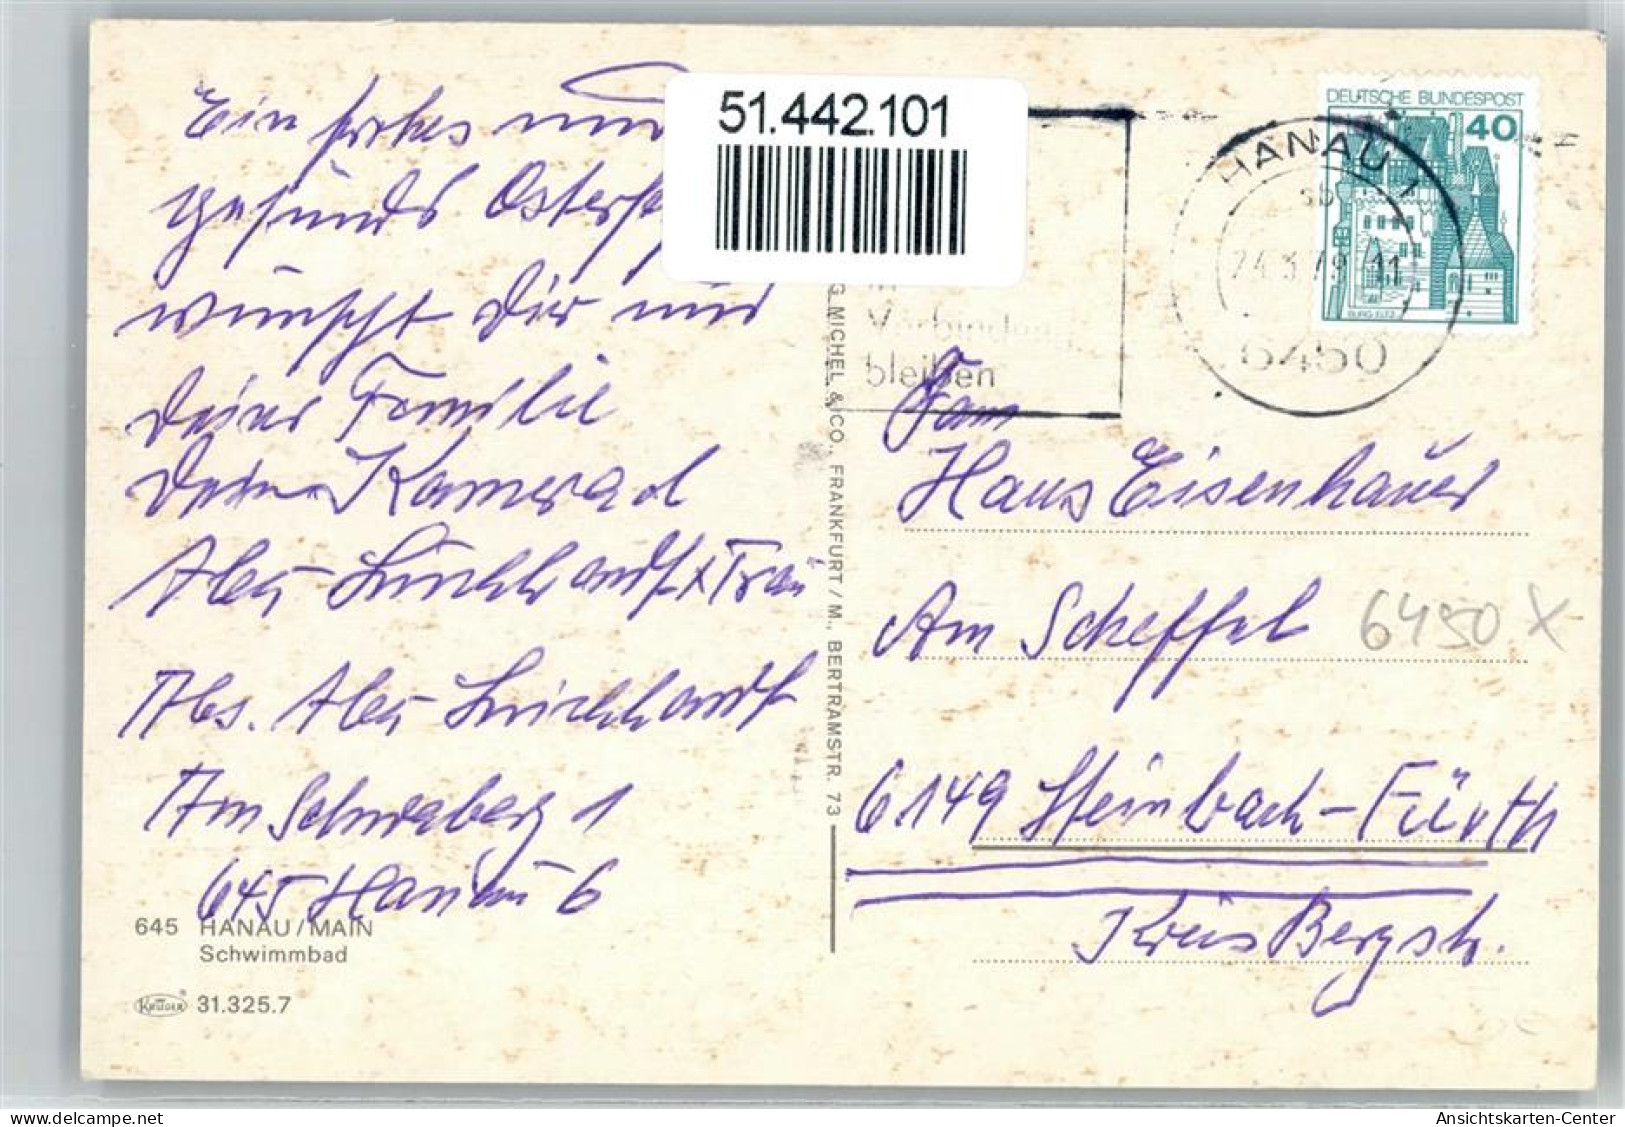 Ein frohes und
gesundes
wünscht Dir und
Deiner Familie
Dein Kamerad
Frau
Abs.
Am
645 Hanau 6
645 HANAU/MAIN
Schwimmbad
KRÜGER 31.325.7
51.442.101
MICHEL & CO., FRANKFURT/M., BERTRAMSTR. 73
in
Verbindung
bleiben
HANAU 1
24.3.79 11
6450
DEUTSCHE BUNDESPOST
40
BURG ELTZ
Hans Eisenhauer
Am Scheffel
6450 X
6149 Steinbach-Fürth
Kreis Bergstr.
Ansichtskarten-Center